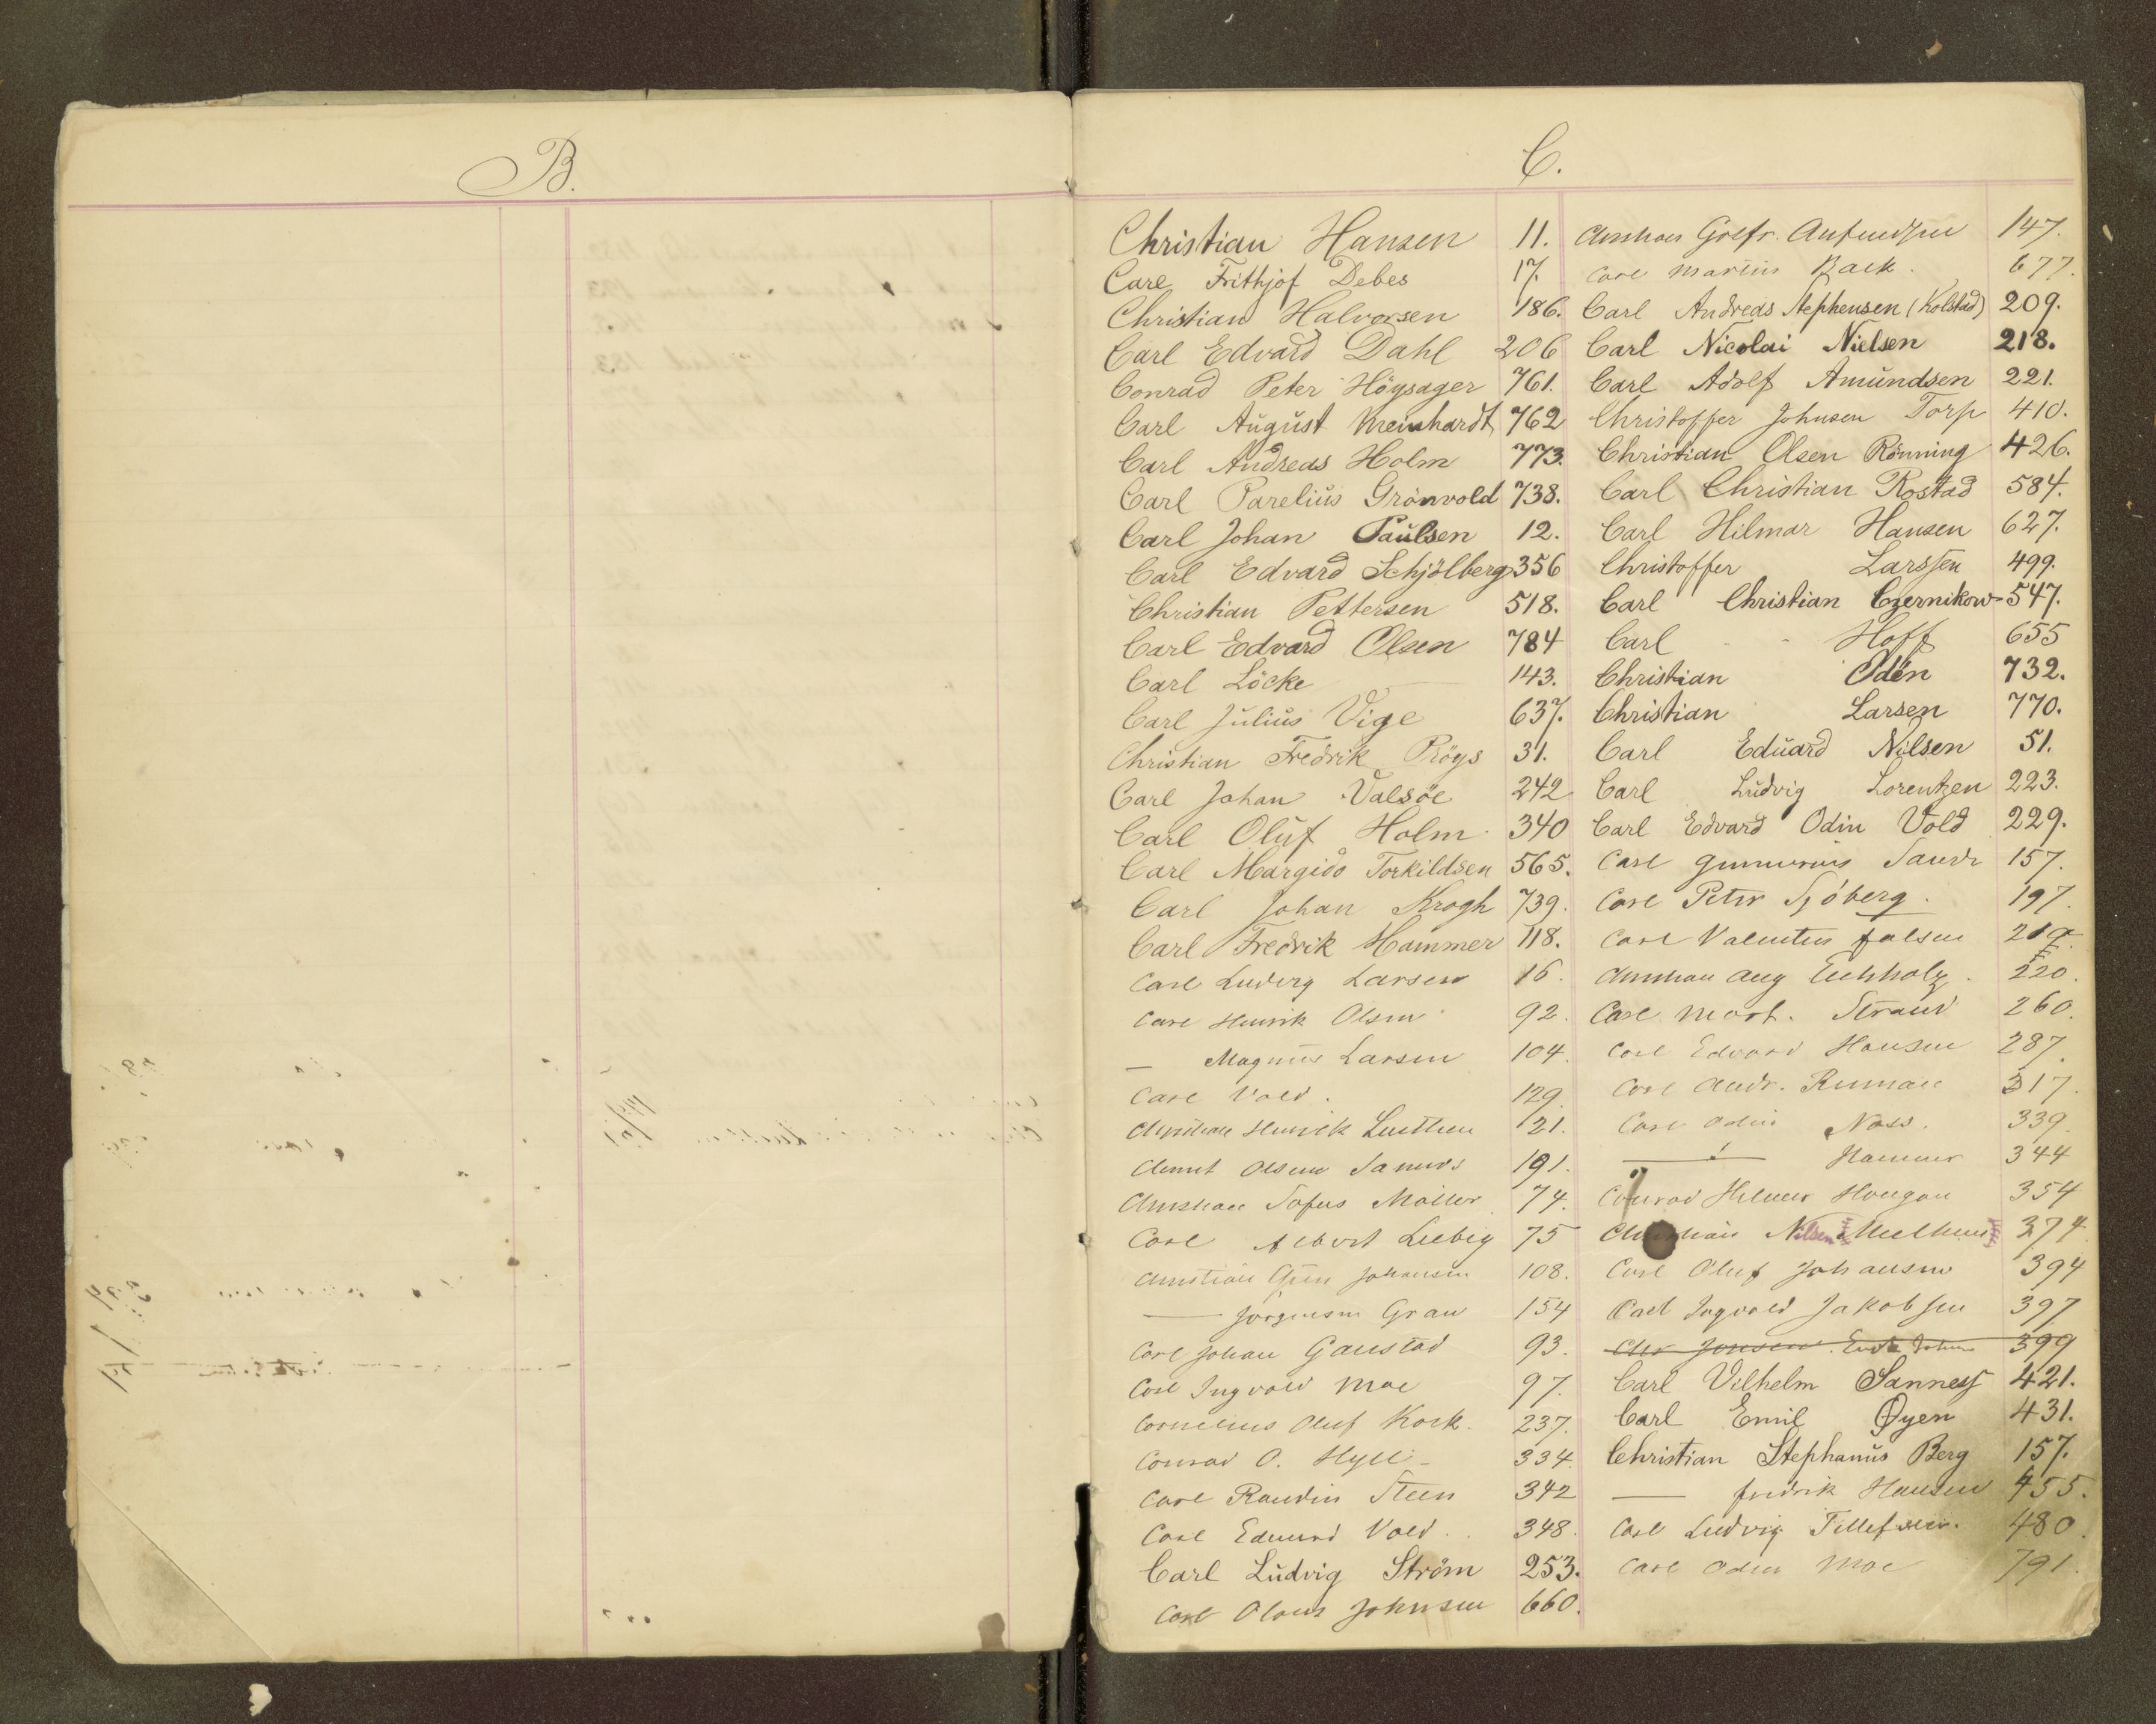 B.
C.
Christian Hansen 11.
Carl Frithjof Debes 17.
Christian Halvorsen 186.
Carl Edvard Dahl 206
Conrad Peter Högsager 761.
Carl August Meinhardt 762
Carl Andreas Holm 773.
Carl Parelius Grönvold 738.
Carl Johan Paulsen 12.
Carl Edvard Schjölberg 356
Christian Pettersen 518.
Carl Edvard Olsen 784
Carl Löcke 143.
Carl Julius Vige 637.
Christian Fredrik Röys 31.
Carl Johan Valsöe 242
Carl Oluf Holm 340
Carl Margido Torkildsen 565.
Carl Johan Krogh 739.
Carl Fredrik Hammer 118.
Carl Ludvig Larsen 16.
Carl Henrik Olsen 92.
— Magnus Larsen 104.
Carl Vold. 129.
Christian Henrik 121.
Olsen 191.
Christian Sofus Möller 74.
Carl Albert Liebig 75
Christian Johansen 108.
— Jörgensen Grav 154
Carl Johan Ganstad 93.
Carl Ingvald Moe 97.
Cornelius Oluf Kock. 237.
Conrad O. Hyll 334.
Carl Randin Steen 342
Carl Edvard Vold. 348.
Carl Ludvig Ström 253.
Carl Olaus Johnsen 660.
Christian Golfr. 147.
Carl Marius Back. 677.
Carl Andreas Stephensen (Kolstad) 209.
Carl Nicolai Nielsen 218.
Carl Adolf Amundsen 221.
Christoffer Johnsen Torp 410.
Christian Olsen Rönning 426.
Carl Christian Rostad 584.
Carl Hilmar Hansen 627.
Christoffer Larssen 499.
Carl Christian Czernikow 547.
Carl - - Hoff 655
Christian Odén 732.
Christian Larsen 770.
Carl Eduard Nilsen 51.
Carl Ludvig Lorentzen 223.
Carl Edvard Odin Vold 229.
Carl Gunnerius 157.
Carl Peter Sjöberg. 197.
Carl Valentin Falsen 219.
Christian Aug Eichholz. 220.
Carl Mart. Strand 260.
Carl Edvard Hansen 287.
Carl Andr. 317.
Carl Odin Noss. 339.
— " — Hammer 344
Conrad Hilmer Haugan 354
Christian Nilsen Melhuus 374
Carl Oluf Johansen 394
Carl Ingvald Jakobsen 397
Chr Jonsen. 399
Carl Vilhelm Sanness 421.
Carl Emil Øyen 431.
Christian Stephanus Berg 157.
— Fredrik Hansen 455.
Carl Ludvig Tillefsen. 480.
Carl Odin Moe 791.